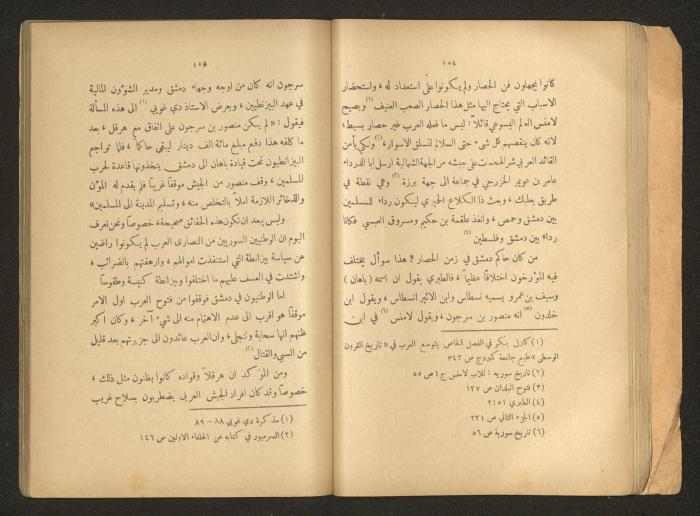 ١٥٤
كانوا يجهلون فن الحصار ولم يكونوا على استعداد له ، واستحضار
الاسباب التي يحتاج اليها مثل هذا الحصار الصعب العنيف (١) ويصيح
لامنس العالم اليسوعي قائلاً : ليس ما فعله العرب غير حصار بسيط ،
لانه كان ينقصهم كل شيء حتى السلالم لتسلق الاسوار ، (٢) ولكي يأمن
القائد العربي شر الهجمات على جيشه من الجهة الشمالية ارسل ابا الدرداء
عامر بن عويمر الخزرجي في جماعة الى جهة برزة (٣) وهي نقطة في
طريق بعلبك ، وبعث ذا الكلاع الحميري ليكون رداء للمسلمين
بين دمشق وحمص ، وانفذ علقمة بن حكيم ومسروق العبسي فكانا
رداء بين دمشق وفلسطين (٤)
من كان حاكم دمشق في زمن الحصار ? هذا سوآل يختلف
فيه المؤرخون اختلافاً عظيماً ، فالطبري يقول ان اسمه ( باهان )
وسيف بن عمرو يسميه نسطاس وابن الاثير انسطاس ، ويقول ابن
خلدون (٥) انه منصور بن سرجون ، ويقول لامنس (٦) في ابن
(١) كارل بكر في الفصل الخاص بتوسع العرب في « تاريخ القرون
الوسطى » طبع جامعة كمبردج ص ٣٤٢
(٢) تاريخ سوريه : للاب لامنس ج ١ ص ٥٥
(٣) فتوح البلدان ص ١٢٧
(٤) الطبري ٢١٥١
(٥) الجزء الثاني ص ٢٢١
(٦) تاريخ سورية ص ٥٦
١٥٥
سرجون انه كان من اوجه وجهاء دمشق ومدير الشؤون المالية
في عهد البيزنطيين ، ويعرض الاستاذ دي غويي (١) الى هذه المسألة
فيقول : « لم يكن منصور بن سرجون على اتفاق مع هرقل ، بعد
ما كلفه هذا دفع مبلغ مائة الف دينار ليبقى حاكماً ، فلما تراجع
البيزنطيون تحت قيادة باهان الى دمشق يتخذونها قاعدة لحرب
المسلمين ، وقف منصور من الجيش موقفاً غريباً فلم يقدم له المؤن
والذخائر اللازمة املاً بالتخلص منه ، وتسليم المدينة الى المسلمين »
وليس ببعد ان تكون هذه الحقائق صحيحة ، خصوصاً ونحن نعرف
اليوم ان الوطنيين السوريين من النصارى العرب لم يكونوا راضين
عن سياسة بيزانطة التي استنفذت اموالهم ، وارهقتهم بالضرائب ،
واشتدت في العسف عليهم ما اختلفوا وبيزانطة كنيسة وطقوسا
اما الوطنيون في دمشق فوقفوا من فتوح العرب اول الامر
موقفاً هو اقرب الى عدم الاهتمام منه الى شيء آخر ، وكان اكبر
ظنهم انها سحابة وتنجلي ، وان العرب عائدون الى جزيرتهم بعد قليل
من السبي والقتال (٢)
ومن المؤكد ان هرقلاً وقواده كانوا يظنون مثل ذلك ،
خصوصاً وقد كان افراد الجيش العربي يضطربون بسلاح غريب
(١) مذكرة دي غويي ٨٨ – ٨٩
(٢) السرميور في كتابه عن الخلفاء الاولين ص ١٤٦